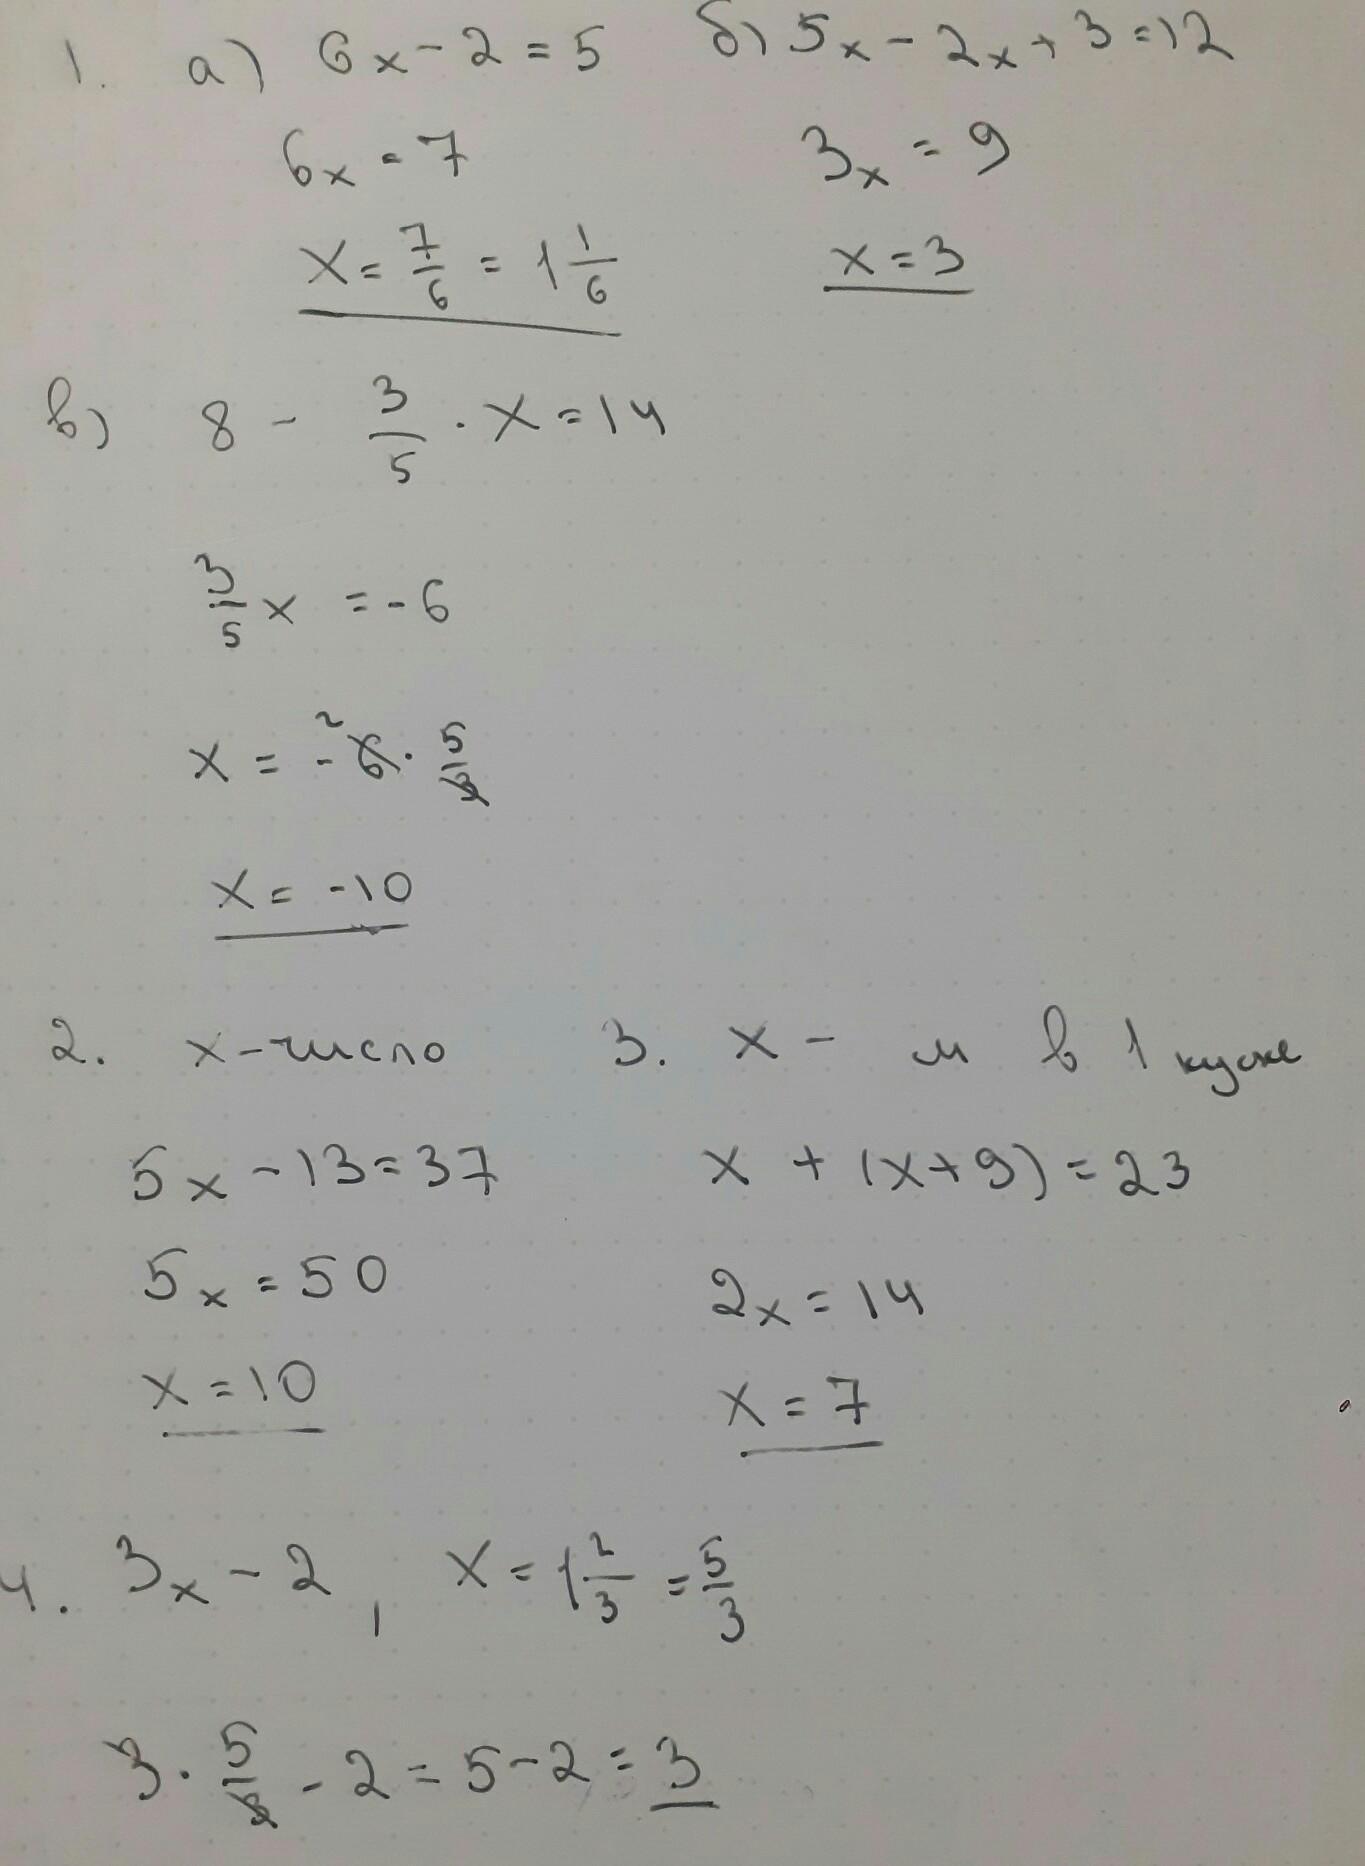 1. а) 6x - 2 = 5 б) 5x - 2x + 3 = 12
6x = 7 3x = 9
x = 7/6 = 1 1/6 x = 3
в) 8 - 3/5 · x = 14
3/5 x = -6
x = -6 2 · 5/3
x = -10
2. x - число 3. x - м в 1 куске
5x - 13 = 37 x + (x + 9) = 23
5x = 50 2x = 14
x = 10 x = 7
4. 3x - 2, x = 1 2/3 = 5/3
3 · 5/3 - 2 = 5 - 2 = 3